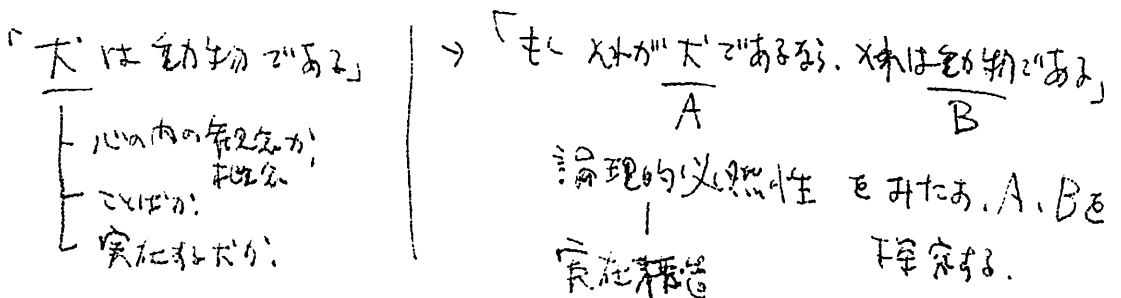 「犬は動物である」
心の内の観念か,
概念
ことばか.
実在する犬か.
→「もしそれが犬であるなら、それは動物である」
A
B
論理的必然性 をみたす、A、Bを
探究する.
実在構造